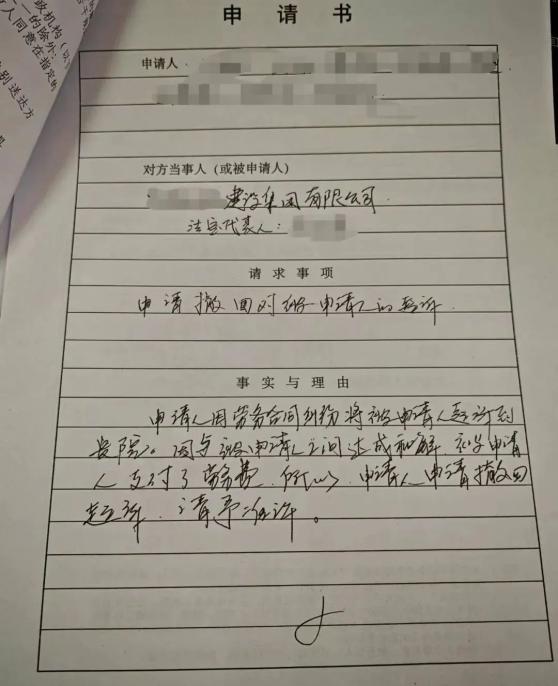 申请书
申请人
对方当事人（或被申请人）
建设集团有限公司
法定代表人：
请求事项
申请撤回对被申请人的起诉.
事实与理由
申请人因劳务合同纠纷将被申请人起诉到
贵院。因与被申请人之间达成和解，被申请
人支付了劳务费，所以，申请人申请撤回
起诉，请予准许。